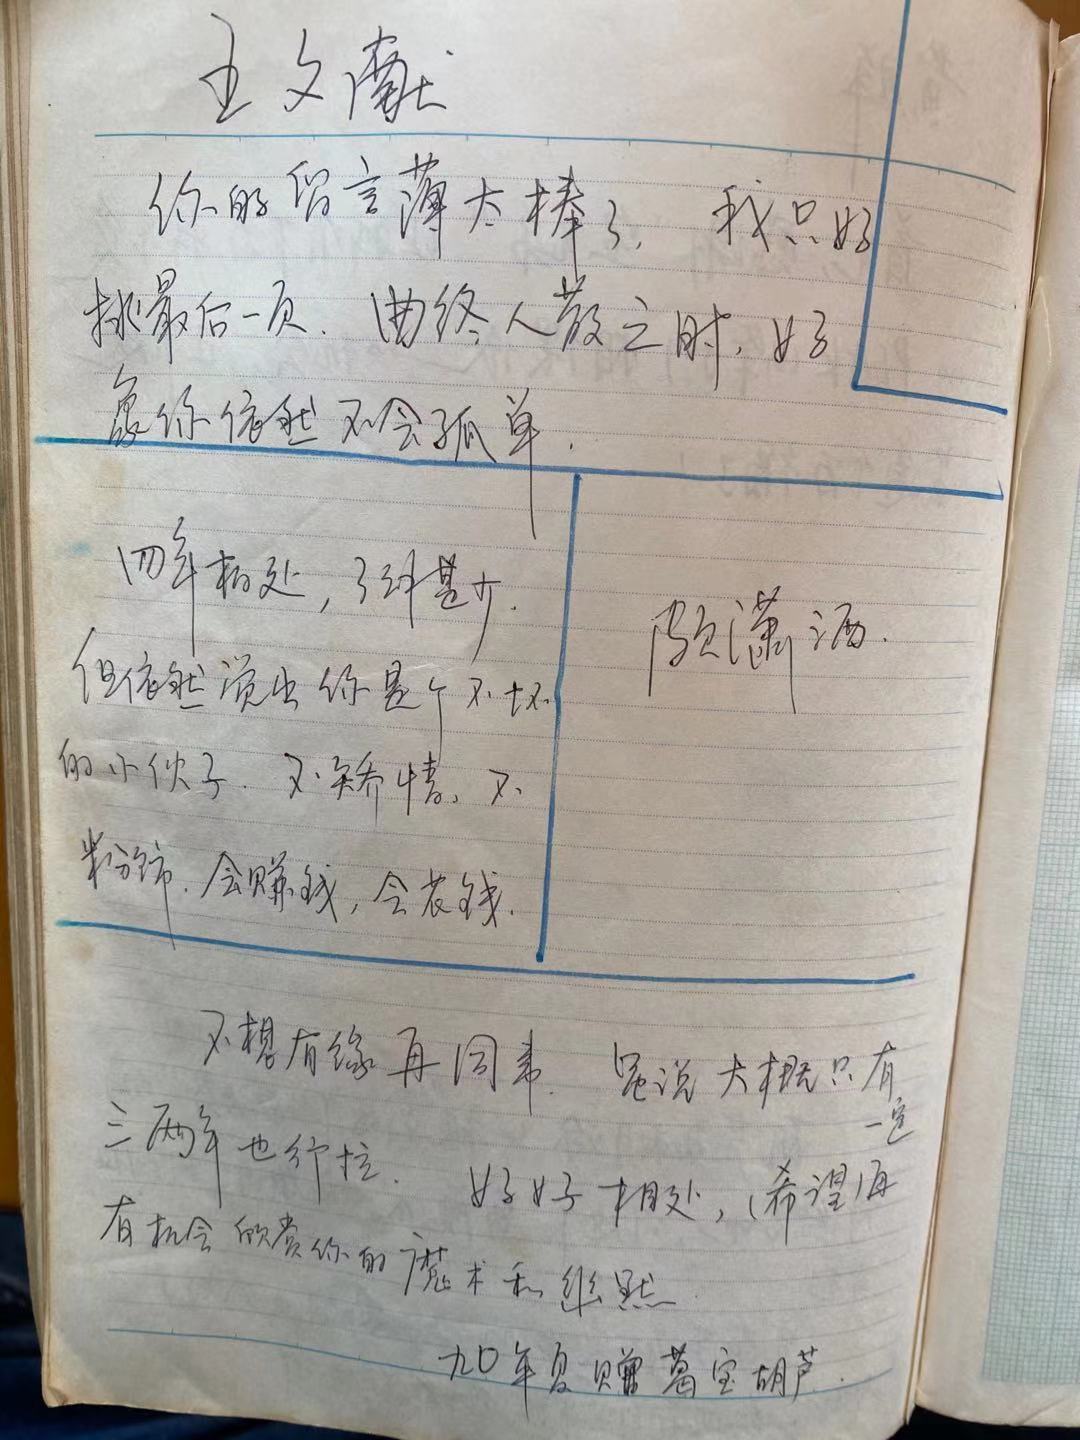 王文献
你的留言薄太棒了. 我只好
挑最后一页. 曲终人散之时, 好
象你依然不会孤单.
四年相处, 了解甚少.
但依然觉出你是个不坏
的小伙子. 不矫情, 不
粉饰. 会赚钱, 会花钱.
颇潇洒.
不想有缘再同事. 虽说大概只有
三两年也行拉. 好好相处, 希望再一定
有机会欣赏你的魔术和幽默
九〇年夏赠葛宝葫芦.